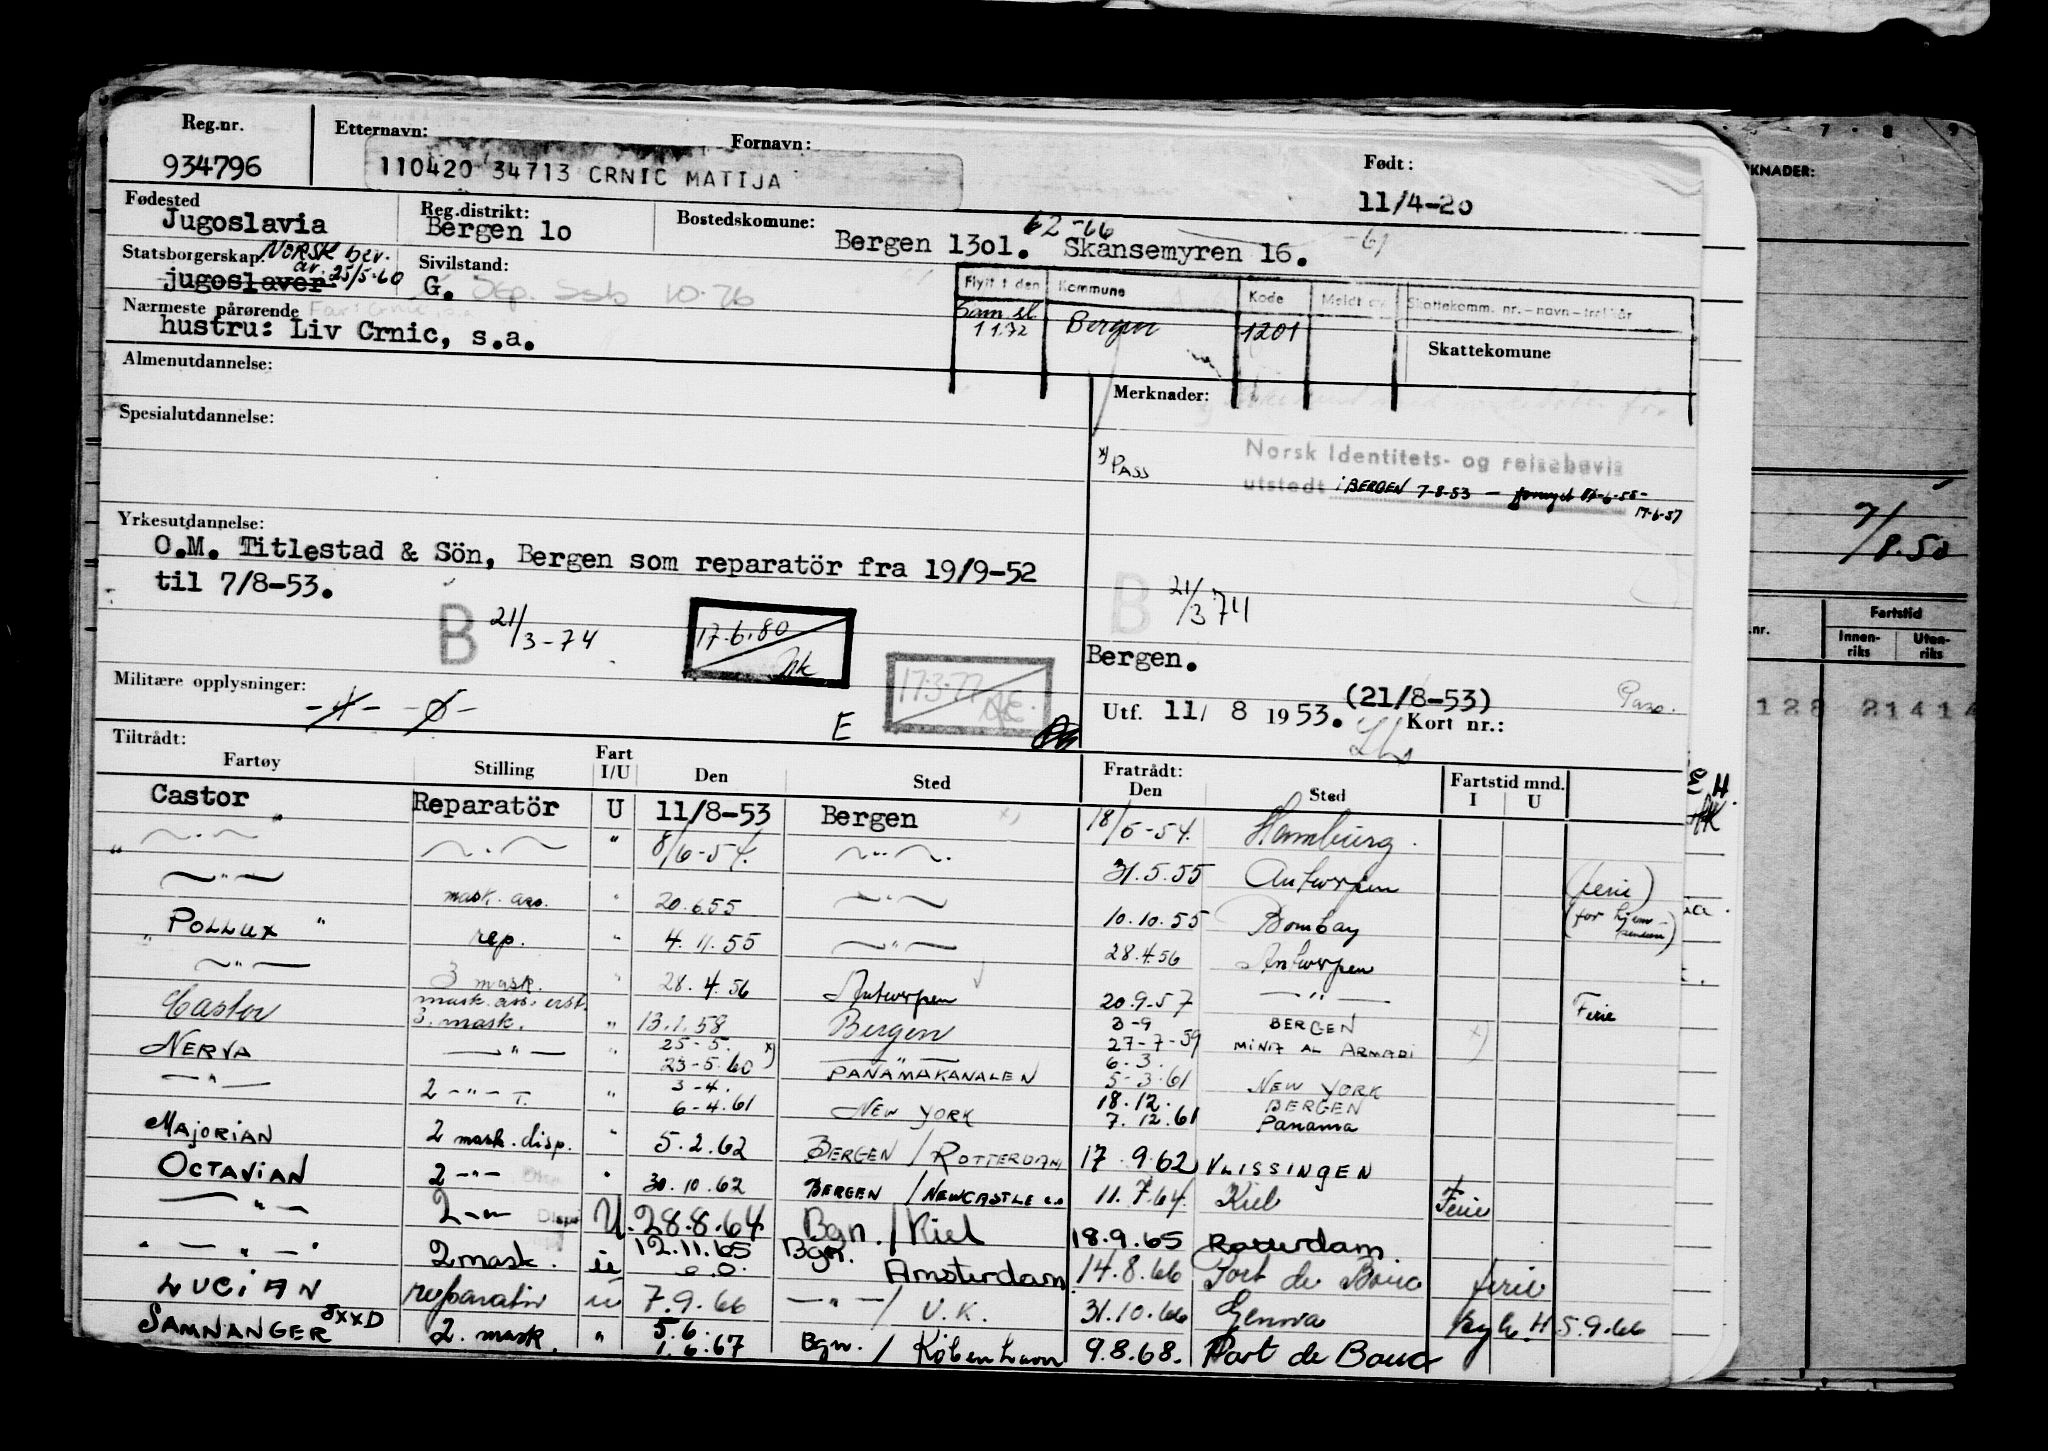 Reg.nr. Etternavn: Fornavn: Født:
934796 110420 34713 CRNIC MATIJA 11/4-20
Fødested Reg.distrikt: Bostedskomune:
Jugoslavia Bergen 1o Bergen 13o1. 62-66 Skansemyren 16. -67
Statsborgerskap NORSK bev. Sivilstand:
av. 25/5-60
jugoslaver G. Sep. 10-76
Flytt i den Kommune Kode Meldt av Skattekomm. nr.-navn-trekkår
Nærmeste pårørende
hustru: Liv Crnic, s.a.
Sam.sl. 1 1.72 Bergen 1201
Skattekomune
Almenutdannelse:
Merknader:
Spesialutdannelse:
x) PASS
Norsk Identitets- og reisebevis
utstedt i BERGEN 7-8-53 - fornyet
17-6-57
Yrkesutdannelse:
O.M. Titlestad & Sön, Bergen som reparatör fra 19/9-52
til 7/8-53.
B 21/3-74 17.6.80 B 21/3 74
Bergen.
17-3-77
Militære opplysninger:
(21/8-53) Pass.
E Utf. 11/ 8 1953. Kort nr.:
Tiltrådt: Fratrådt:
Fartøy Stilling Fart I/U Den Sted Den Sted Fartstid mnd. I U
Castor Reparatör U 11/8-53 Bergen x) 18/5-54. Hamburg.
" — " — — " — " 8/6-54. — " — 31.5.55 Antwerpen (ferie)
— " — mask. ass. " 20.6.55 — " — 10.10.55 Bombay (for hjem-
POLLUX " rep. " 4.11.55 — " — 28.4.56 Antwerpen
— " — 3 mask. " 28.4.56 Antwerpen 20.9-57 — " — Ferie
Castor mask. ass. erst. 3. mask. " 13.1.58 Bergen 3-9 BERGEN
NERVA — " — " 25-5. 23-5.60 x) — " — PANAMAKANALEN 27-7-59 MINA AL ARMADI x)
6-3. 5-3.61 NEW YORK
— " — 2 — " — T. " 3-4. 6-4.61 NEW YORK 18.12. BERGEN
7.12.61 Panama
MAJORIAN 2 mask. disp. " 5.2.62 BERGEN / ROTTERDAM 17.9.62 VLISSINGEN
OCTAVIAN 2 — " — " 30.10.62 BERGEN / NEWCASTLE 11.7.64. Kiel Ferie
— " — 2 — " — Disp U. 28.8.64 Bgn. / Kiel 18.9.65 Rotterdam
— " — 2 mask. " 12.11.65 Bgn. Amsterdam 14.8.66 Port de Bouc ferie
LUCIAN reparatör " 7.9.66 — " — / U.K. 31.10.66 Genova syk. H 5.9.66
SAMNANGER JXXD 2. mask. " 5.6. 1.6.67 Bgn. / København 9.8.68. Port de Bouc
7 8 9
KNADER:
7/8.50
Fartstid
.nr. Innen-riks Uten-riks
128 21414